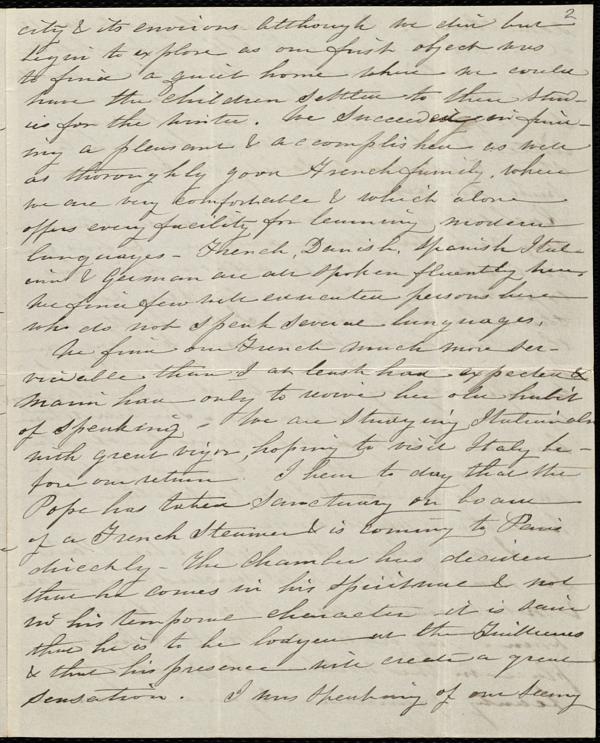 2
city & its environs although we did but
begin to explore as our first object was
to find a quiet home where we could
have the children settled to their stud-
ies for the winter. We succeeded in find-
ing a pleasant & accomplished as well
as thoroughly good French family, where
we are very comfortable & which alone
offers every facility for learning modern
languages - French, Danish, Spanish Ital-
ian & German are all spoken fluently here
We find few well educated persons here
who do not speak several languages.
We find our French much more ser-
viceable than I at least had expected &
had only to revive her old habit
of speaking - We are studying Italian also
with great vigor, hoping to visit Italy be-
fore our return. I hear to day that the
Pope has taken sanctuary on board
of a French Steamer & is coming to Paris
directly - The Chamber has decided
that he comes in his spiritual & not
in his temporal character it is said
that he is to be lodged at the Tuilleries
& that his presence will create a great
sensation. I was speaking of our being